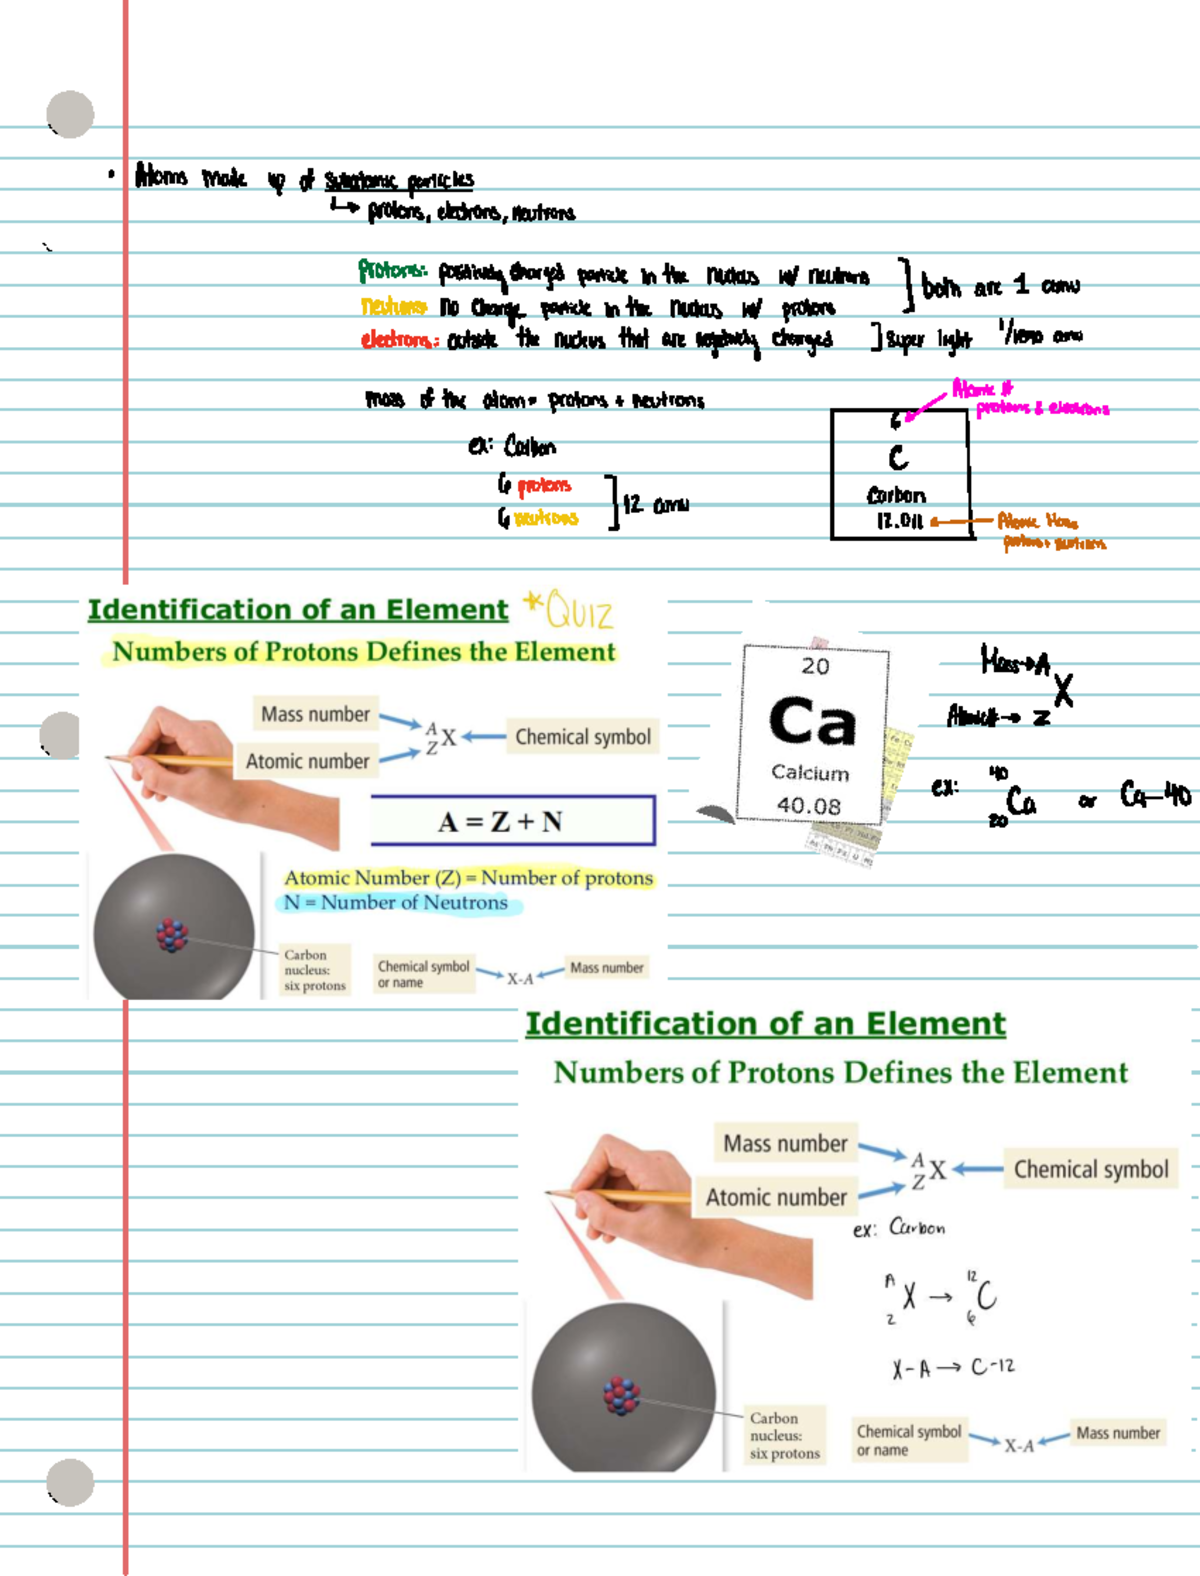 • Atoms made up of subatomic particles
↳ protons, electrons, neutrons
Protons: positively charged particle in the nucleus w/ neutrons
neutrons: no charge particle in the nucleus w/ protons
both are 1 amu
electrons: outside the nucleus that are negatively charged
super light
mass of the atom = protons + neutrons
ex: Carbon
6 protons
6 neutrons
12 amu
Atomic #
protons & electrons
6
C
Carbon
12.011
Atomic Mass
protons + neutrons
Identification of an Element
*QUIZ
Numbers of Protons Defines the Element
Mass number
Atomic number
A
Z
X
Chemical symbol
A = Z + N
Atomic Number (Z) = Number of protons
N = Number of Neutrons
Carbon
nucleus:
six protons
Chemical symbol
or name
X-A
Mass number
20
Ca
Calcium
40.08
Mass → A
X
Atomic # → Z
ex:
40
Ca
20
or Ca-40
Identification of an Element
Numbers of Protons Defines the Element
Mass number
Atomic number
A
Z
X
Chemical symbol
ex: Carbon
A
X
Z
→
12
C
6
X-A → C-12
Carbon
nucleus:
six protons
Chemical symbol
or name
X-A
Mass number